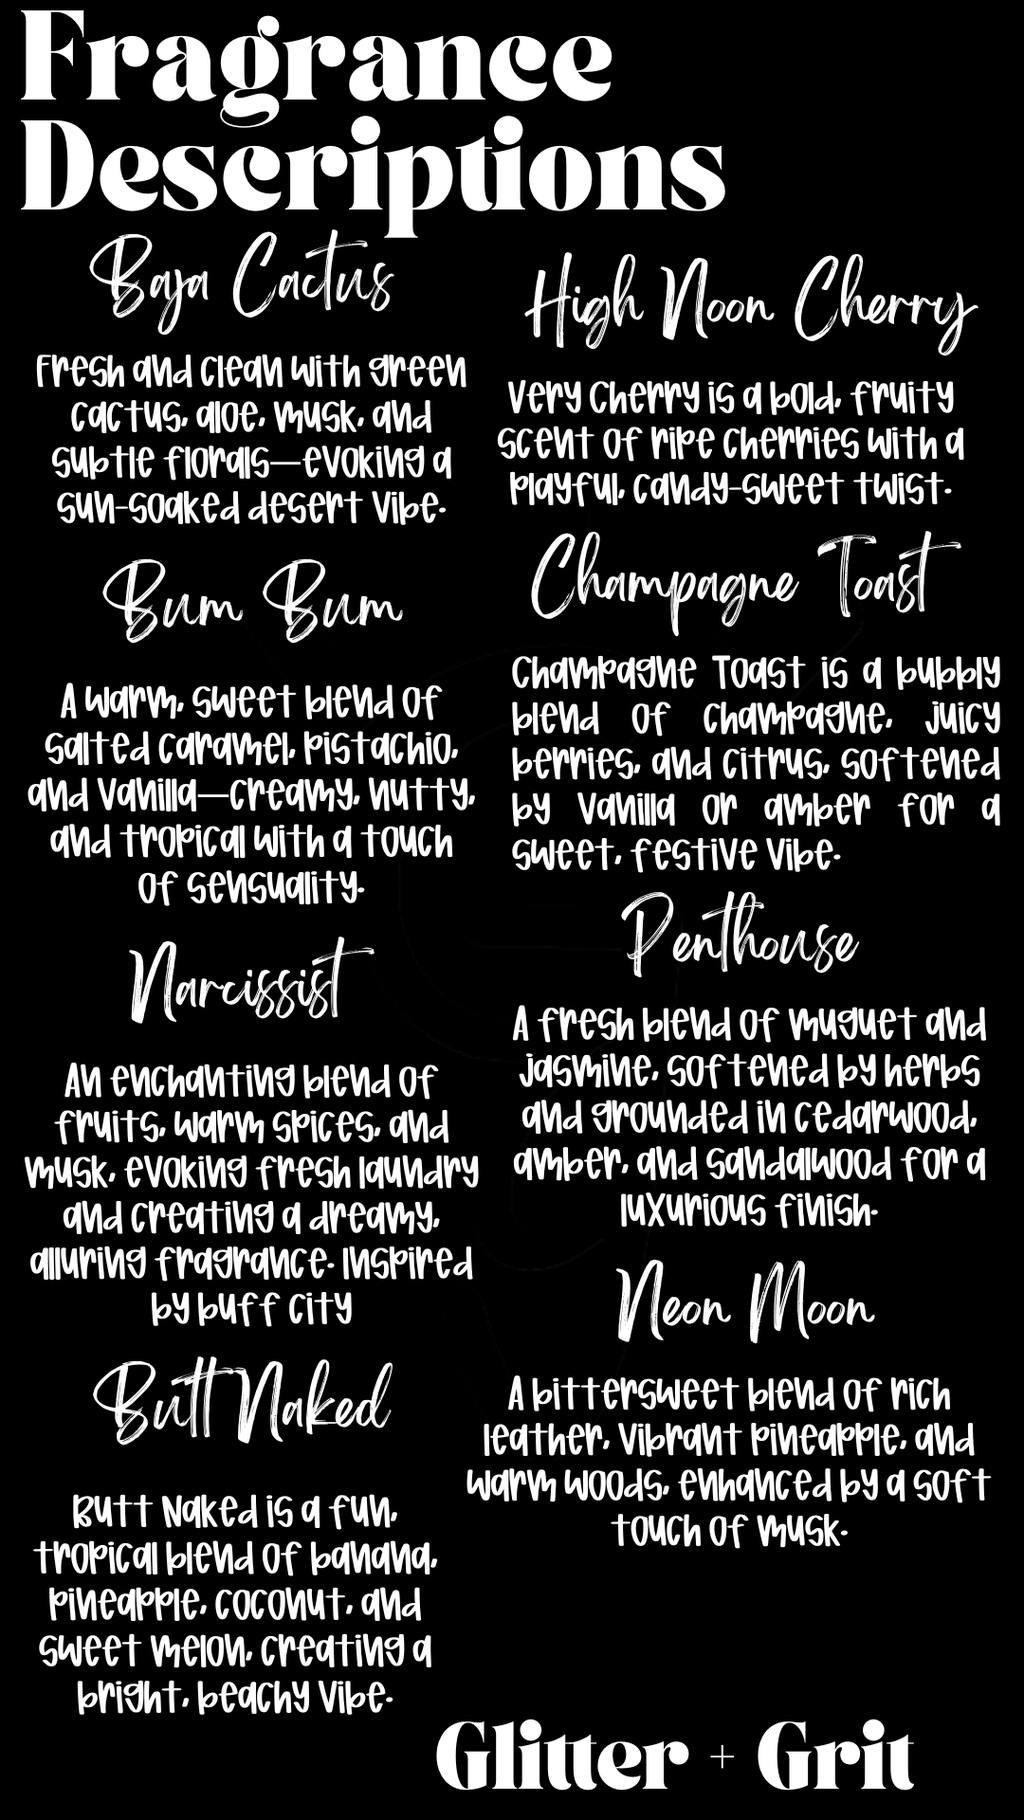 Fragrance
Descriptions
Baja Cactus
Fresh and clean with green
cactus, aloe, musk, and
subtle florals—evoking a
sun-soaked desert vibe.
Bum Bum
A warm, sweet blend of
salted caramel, pistachio,
and vanilla—creamy, nutty,
and tropical with a touch
of sensuality.
Narcissist
An enchanting blend of
fruits, warm spices, and
musk, evoking fresh laundry
and creating a dreamy,
alluring fragrance. Inspired
by buff city
Butt Naked
Butt Naked is a fun,
tropical blend of banana,
pineapple, coconut, and
sweet melon, creating a
bright, beachy vibe.
High Noon Cherry
Very Cherry is a bold, fruity
scent of ripe cherries with a
playful, candy-sweet twist.
Champagne Toast
Champagne Toast is a bubbly
blend of champagne, juicy
berries, and citrus, softened
by vanilla or amber for a
sweet, festive vibe.
Penthouse
A fresh blend of muguet and
jasmine, softened by herbs
and grounded in cedarwood,
amber, and sandalwood for a
luxurious finish.
Neon Moon
A bittersweet blend of rich
leather, vibrant pineapple, and
warm woods, enhanced by a soft
touch of musk.
Glitter + Grit